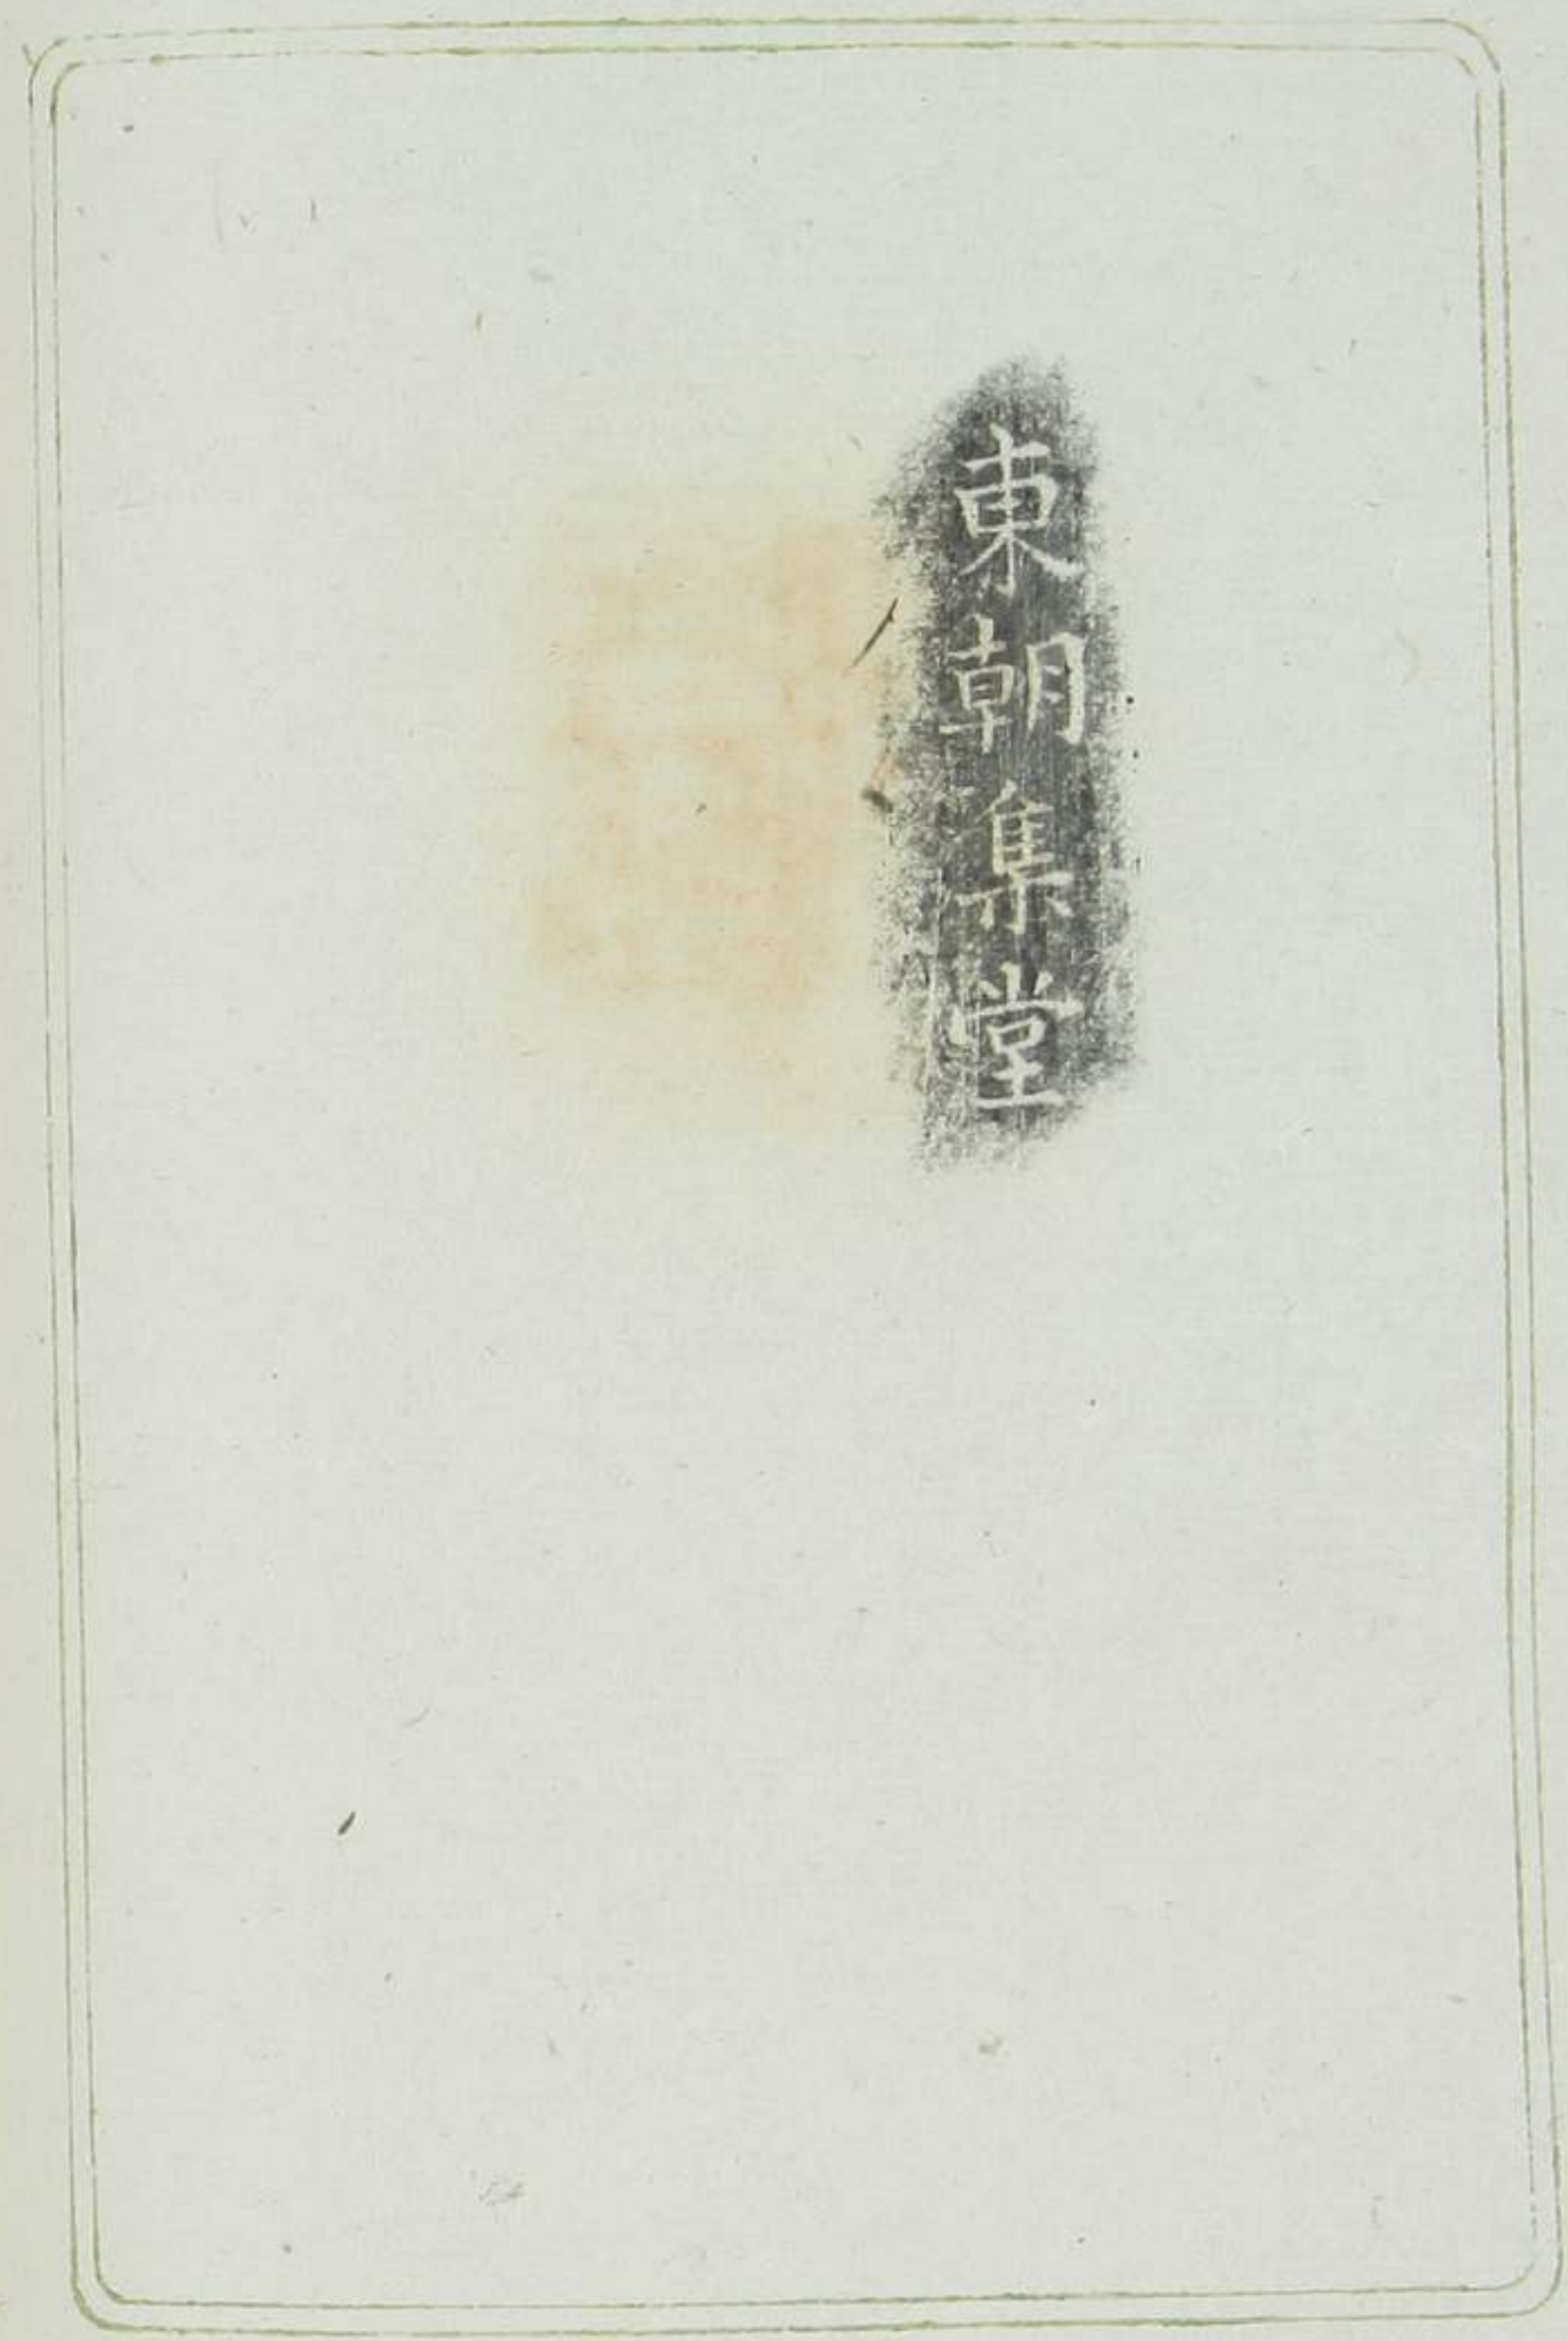 東朝集堂